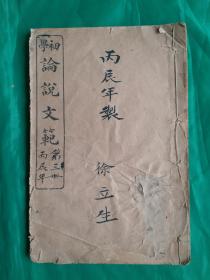 初學
論說文範
第三冊
丙辰年
丙辰年製
徐立生